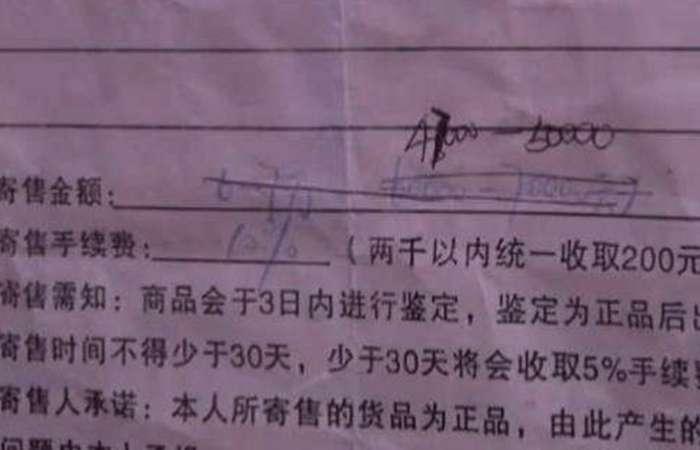 50000
寄售金额:
寄售手续费: 10% (两千以内统一收取200元
寄售需知: 商品会于3日内进行鉴定, 鉴定为正品后
寄售时间不得少于30天, 少于30天将会收取5%手续
寄售人承诺: 本人所寄售的货品为正品, 由此产生的